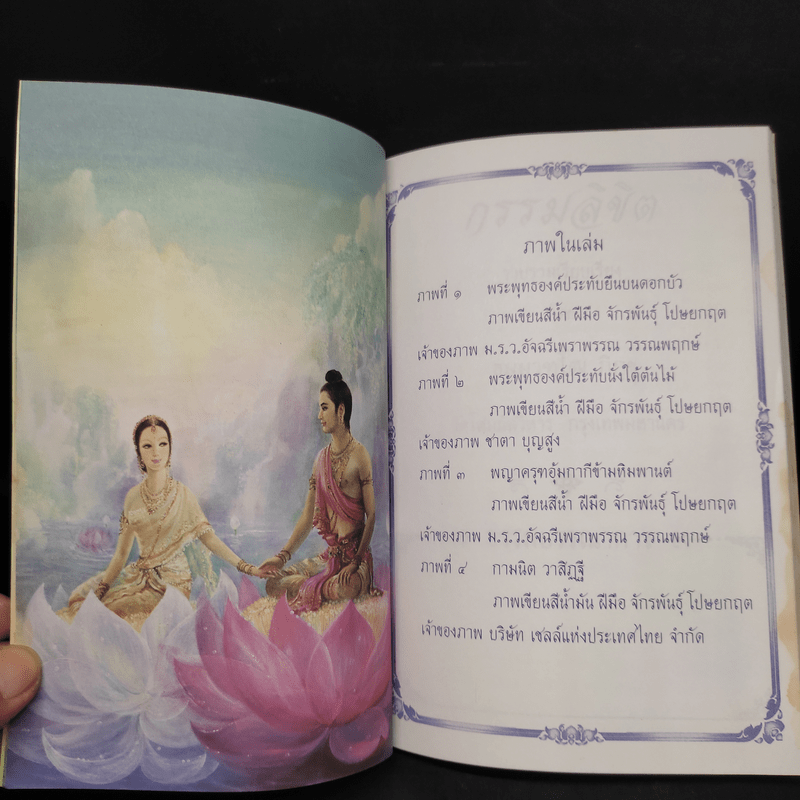 กรรมลิขิต
ภาพในเล่ม
ภาพที่ ๑ พระพุทธองค์ประทับยืนบนดอกบัว
ภาพเขียนสีน้ำ ฝีมือ จักรพันธุ์ โปษยกฤต
เจ้าของภาพ ม.ร.ว.อัจฉรีเพราพรรณ วรรณพฤกษ์
ภาพที่ ๒ พระพุทธองค์ประทับนั่งใต้ต้นไม้
ภาพเขียนสีน้ำ ฝีมือ จักรพันธุ์ โปษยกฤต
เจ้าของภาพ ชาตา บุญสูง
ภาพที่ ๓ พญาครุฑอุ้มกากีข้ามหิมพานต์
ภาพเขียนสีน้ำ ฝีมือ จักรพันธุ์ โปษยกฤต
เจ้าของภาพ ม.ร.ว.อัจฉรีเพราพรรณ วรรณพฤกษ์
ภาพที่ ๔ กามนิต วาสิฏฐี
ภาพเขียนสีน้ำมัน ฝีมือ จักรพันธุ์ โปษยกฤต
เจ้าของภาพ บริษัท เชลล์แห่งประเทศไทย จำกัด